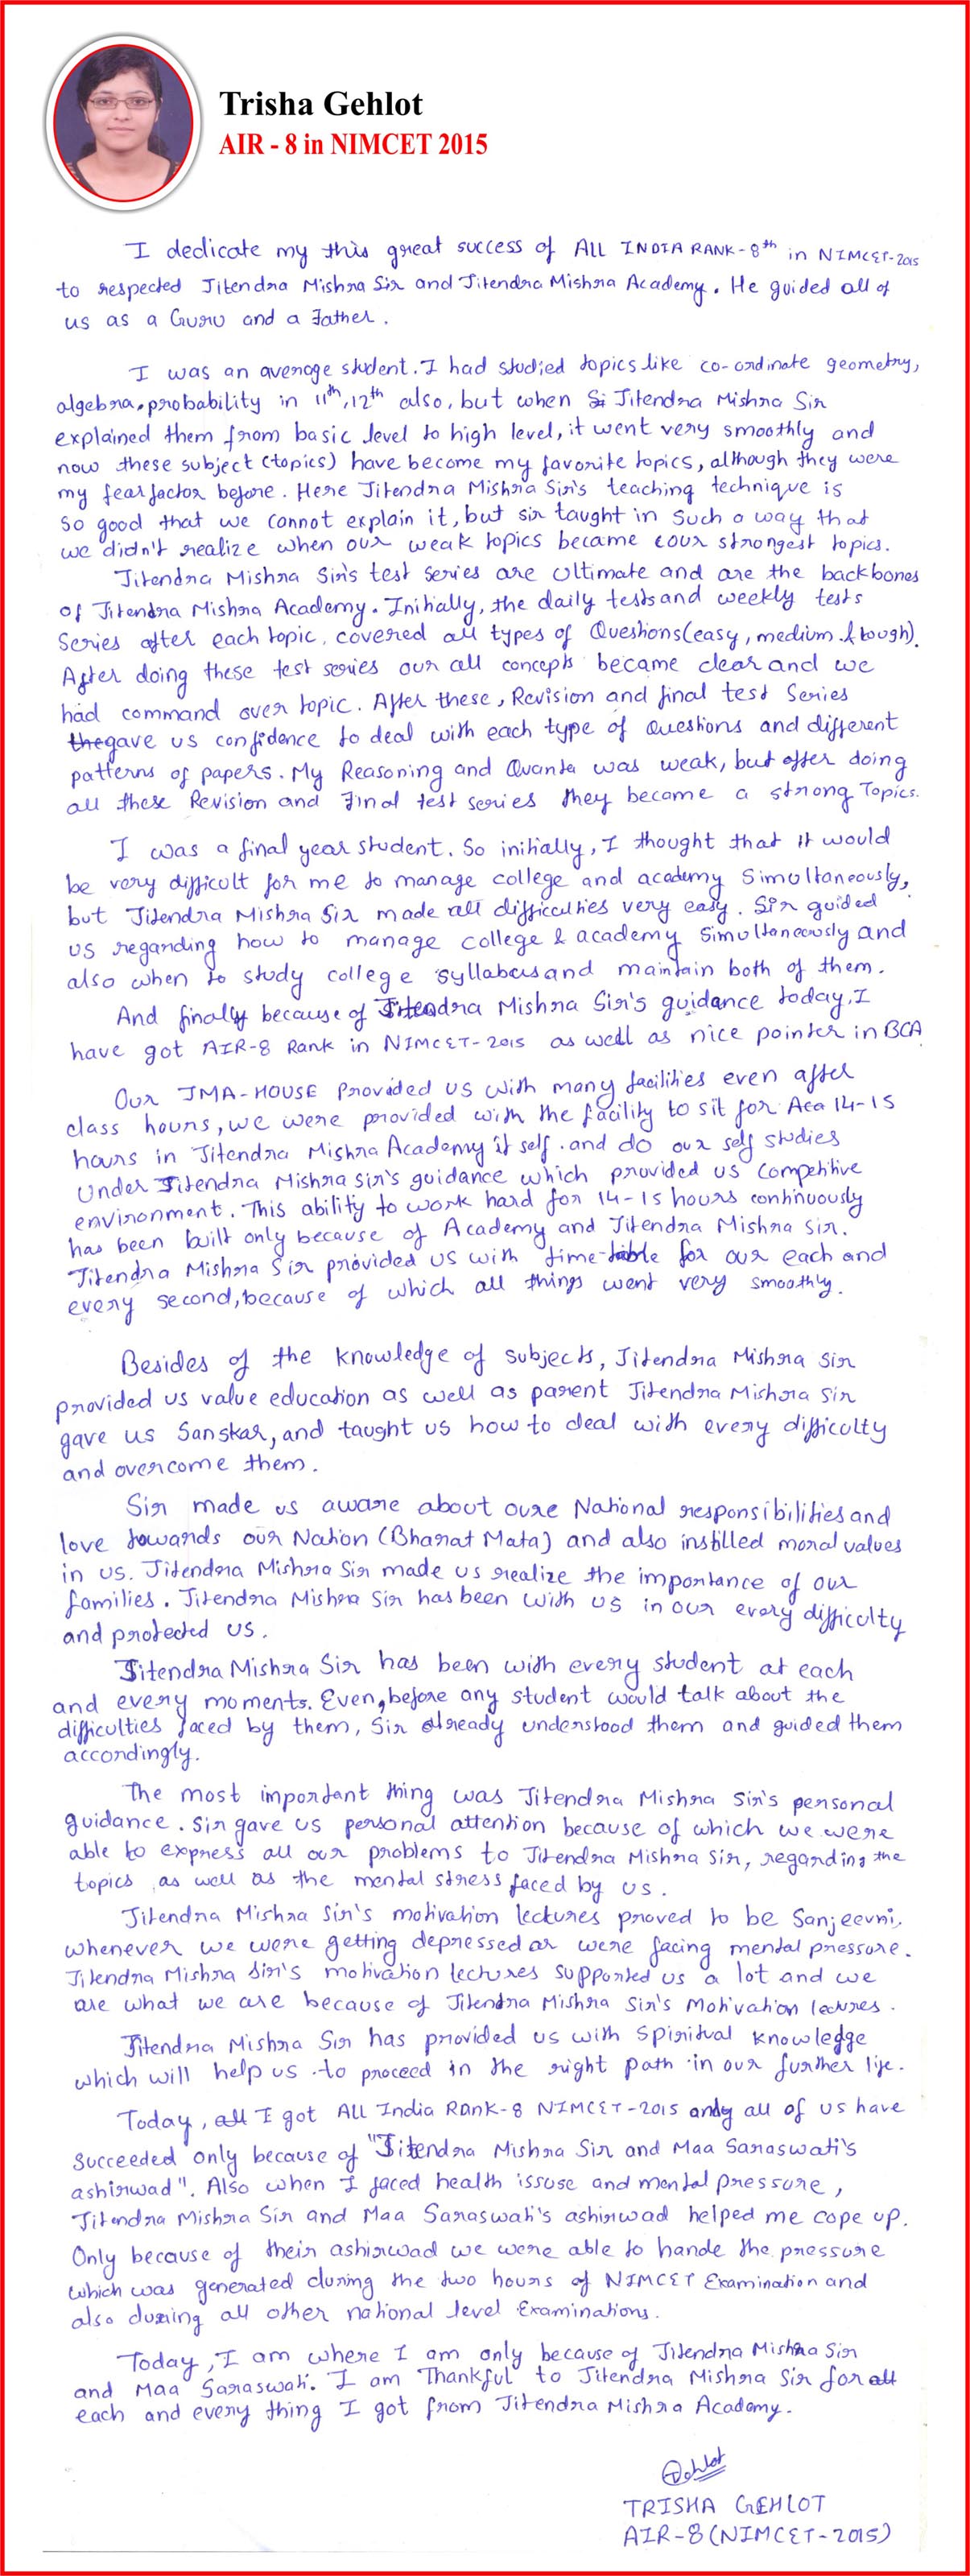 Trisha Gehlot
AIR - 8 in NIMCET 2015
I dedicate my this great success of ALL INDIA RANK-8th in NIMCET-2015
to respected Jitendra Mishra Sir and Jitendra Mishra Academy. He guided all of
us as a Guru and a Father.
I was an average student. I had studied topics like co-ordinate geometry,
algebra, probability in 11th, 12th also, but when Si Jitendra Mishra Sir
explained them from basic level to high level, it went very smoothly and
now these subject (topics) have become my favorite topics, although they were
my fear factor before. Here Jitendra Mishra Sir's teaching technique is
so good that we cannot explain it, but sir taught in such a way that
we didn't realize when our weak topics became our strongest topics.
Jitendra Mishra Sir's test series are ultimate and are the backbones
of Jitendra Mishra Academy. Initially, the daily tests and weekly tests
series after each topic, covered all types of Questions (easy, medium & tough).
After doing these test series our all concepts became clear and we
had command over topic. After these, Revision and final test series
the gave us confidence to deal with each type of Questions and different
patterns of papers. My Reasoning and Quanta was weak, but after doing
all these Revision and Final test series they became a strong Topics.
I was a final year student. So initially, I thought that it would
be very difficult for me to manage college and academy simultaneously,
but Jitendra Mishra Sir made all difficulties very easy. Sir guided
us regarding how to manage college & academy simultaneously and
also when to study college syllabus and maintain both of them.
And finally because of Jitendra Mishra Sir's guidance today, I
have got AIR-8 Rank in NIMCET-2015 as well as nice pointer in BCA
Our JMA-HOUSE Provided us with many facilities even after
class hours, we were provided with the facility to sit for 14-15
hours in Jitendra Mishra Academy it self. and do our self studies
under Jitendra Mishra Sir's guidance which provided us competitive
environment. This ability to work hard for 14-15 hours continuously
has been built only because of Academy and Jitendra Mishra Sir.
Jitendra Mishra Sir provided us with time-table for our each and
every second, because of which all things went very smoothly.
Besides of the knowledge of subjects, Jitendra Mishra Sir
provided us value education as well as parent Jitendra Mishra Sir
gave us Sanskar, and taught us how to deal with every difficulty
and overcome them.
Sir made us aware about oure National responsibilities and
love towards our Nation (Bharat Mata) and also instilled moral values
in us. Jitendra Mishra Sir made us realize the importance of our
families. Jitendra Mishra Sir has been with us in our every difficulty
and protected us.
Jitendra Mishra Sir has been with every student at each
and every moments. Even, before any student would talk about the
difficulties faced by them, Sir already understood them and guided them
accordingly.
The most important thing was Jitendra Mishra Sir's personal
guidance. Sir gave us personal attention because of which we were
able to express all our problems to Jitendra Mishra Sir, regarding the
topics as well as the mental stress faced by us.
Jitendra Mishra Sir's motivation lectures proved to be Sanjeevni,
whenever we were getting depressed or were facing mental pressure.
Jitendra Mishra Sir's motivation lectures supported us a lot and we
are what we are because of Jitendra Mishra Sir's Motivation lectures.
Jitendra Mishra Sir has provided us with spiritual knowledge
which will help us to proceed in the right path in our further life.
Today, all I got All India Rank-8 NIMCET-2015 and all of us have
succeeded only because of "Jitendra Mishra Sir and Maa Saraswati's
ashirwad". Also when I faced health issuse and mental pressure,
Jitendra Mishra Sir and Maa Saraswati's ashirwad helped me cope up.
Only because of their ashirwad we were able to hande the pressure
which was generated during the two hours of NIMCET Examination and
also during all other national level Examinations.
Today, I am where I am only because of Jitendra Mishra Sir
and Maa Saraswati. I am Thankful to Jitendra Mishra Sir for all
each and every thing I got from Jitendra Mishra Academy.
TRISHA GEHLOT
AIR-8 (NIMCET-2015)